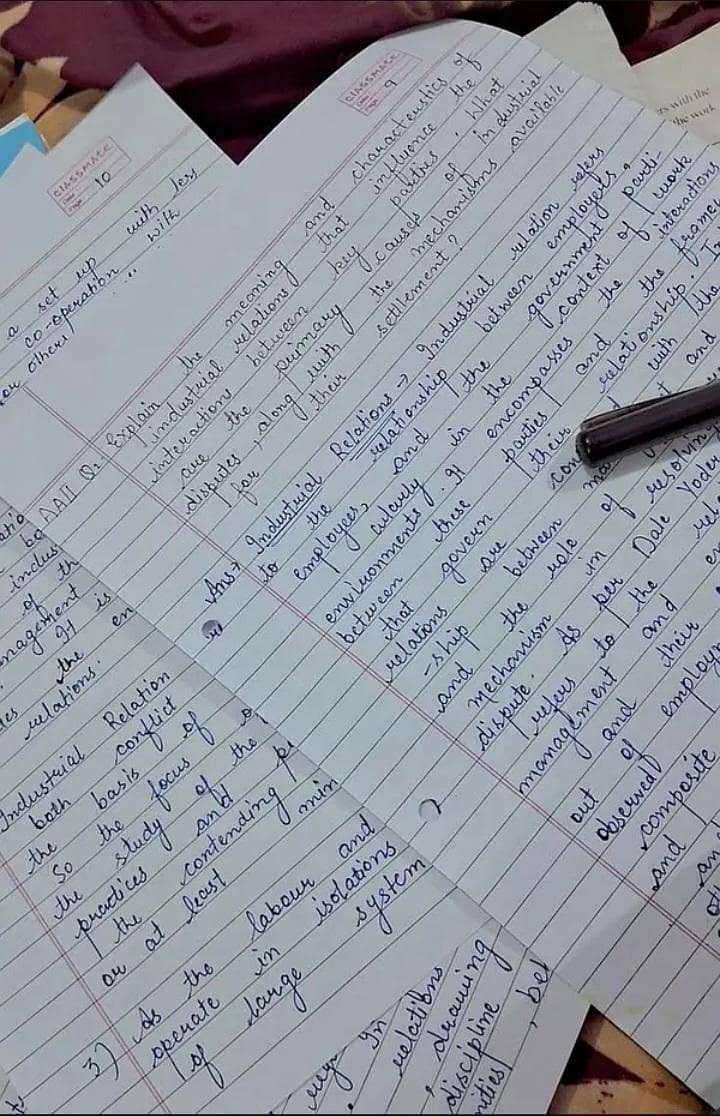 CLASSMATE
Date
Page 9
AATI Q: Explain the meaning and characteristics of
industrial relations that influence the
interactions between parties. What
are the primary key causes of industrial
disputes, along with the mechanisms available
for their settlement?
Ans → Industrial Relations → Industrial relation refers
to the relationship between employers,
employees, and the government, parti-
-cularly in the context of work
environments. It encompasses the interactions
between these parties and the frame
that govern their relationship.
relations are with the
-ship between and
and the role of resolving
mechanism in
dispute. As per Dale Yoder
refers to the
management and
out of and their
observed employm
composite
and
CLASSMATE
Date
Page 10
a set up with less
co-operation with
or others
indus
of th
management
It is
the en
relations.
Industrial Relation
both conflict
the basis of
So the focus of
the study of the
practices and
the contending
or at least min
3) As the labour and
operate in isolations
of large system
In
relations
drawing
discipline
, bet
ers with the
the work